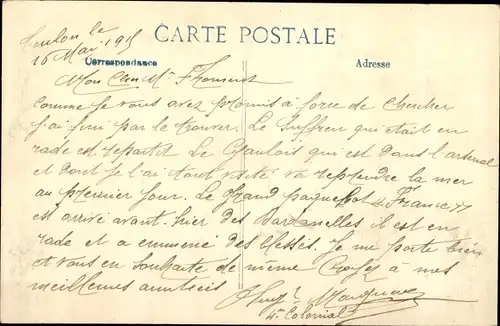 Toulon le
16 Mai 1915
CARTE POSTALE
Correspondance
Adresse
Mon Cher Mr
Comme je vous avez promis à force de chercher
j'ai fini par le trouver. Le Suffren qui était en
rade est repartit Le Gaulois qui est dans l'arsenal
et dont je l'ai tout visité va reprendre la mer
au premier jour. Le Grand paquebot France
est arrivé avant-hier des Dardanelles il est en
rade et a emmené des blessés. Je me porte bien
et vous en souhaite de même Croyez a mes
meilleures amitiées
4e Colonial